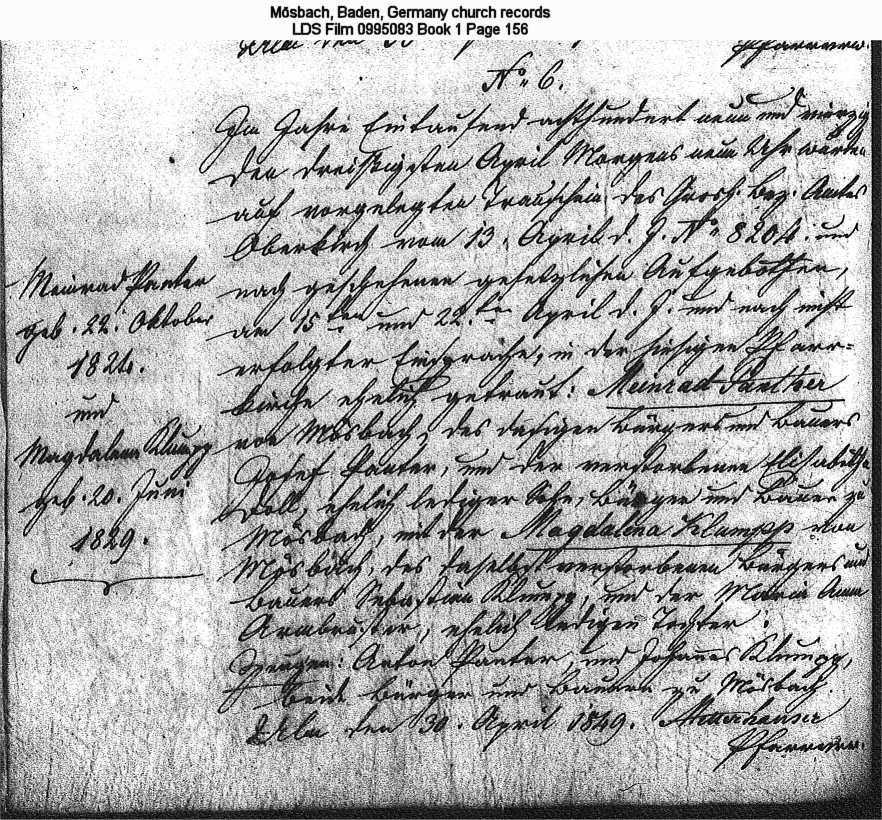 Mösbach, Baden, Germany church records
LDS Film 0995083 Book 1 Page 156
Ulm den
Pfarrverw.
No. 6.
Im Jahre Eintausend achthundert neun und vierzig
den dreißigsten April Morgens neun Uhr wurden
auf vorgelegten Trauschein des Grosh. Bez. Amtes
Oberkirch vom 13. April d. J. No. 8204. und
nach geschehenen gesetzlichen Aufgebothen,
am 15ten und 22.ten April d. J. und nach nicht
erfolgter Einsprache, in der hiesigen Pfarr=
kirche ehelich getraut: Meinrad Panther
von Mösbach, des dasigen Bürgers und Bauers
Josef Panter, und der verstorbenen Elisabetha
Doll, ehelich lediger Sohn, Bürger und Bauer zu
Mösbach, mit der Magdalena Klumpp von
Mösbach, des daselbst verstorbenen Bürgers und
Bauers Sebastian Klumpp, und der Maria Anna
Armbruster, ehelich ledigen Tochter:
Zeugen: Anton Panter, und Johannes Klumpp,
beide Bürger und Bauern zu Mösbach.
Ulm den 30. April 1849.
Pfarrverw.
Meinrad Panter
geb. 22. Oktober
1824.
und
Magdalena Klumpp
geb. 20. Juni
1829.